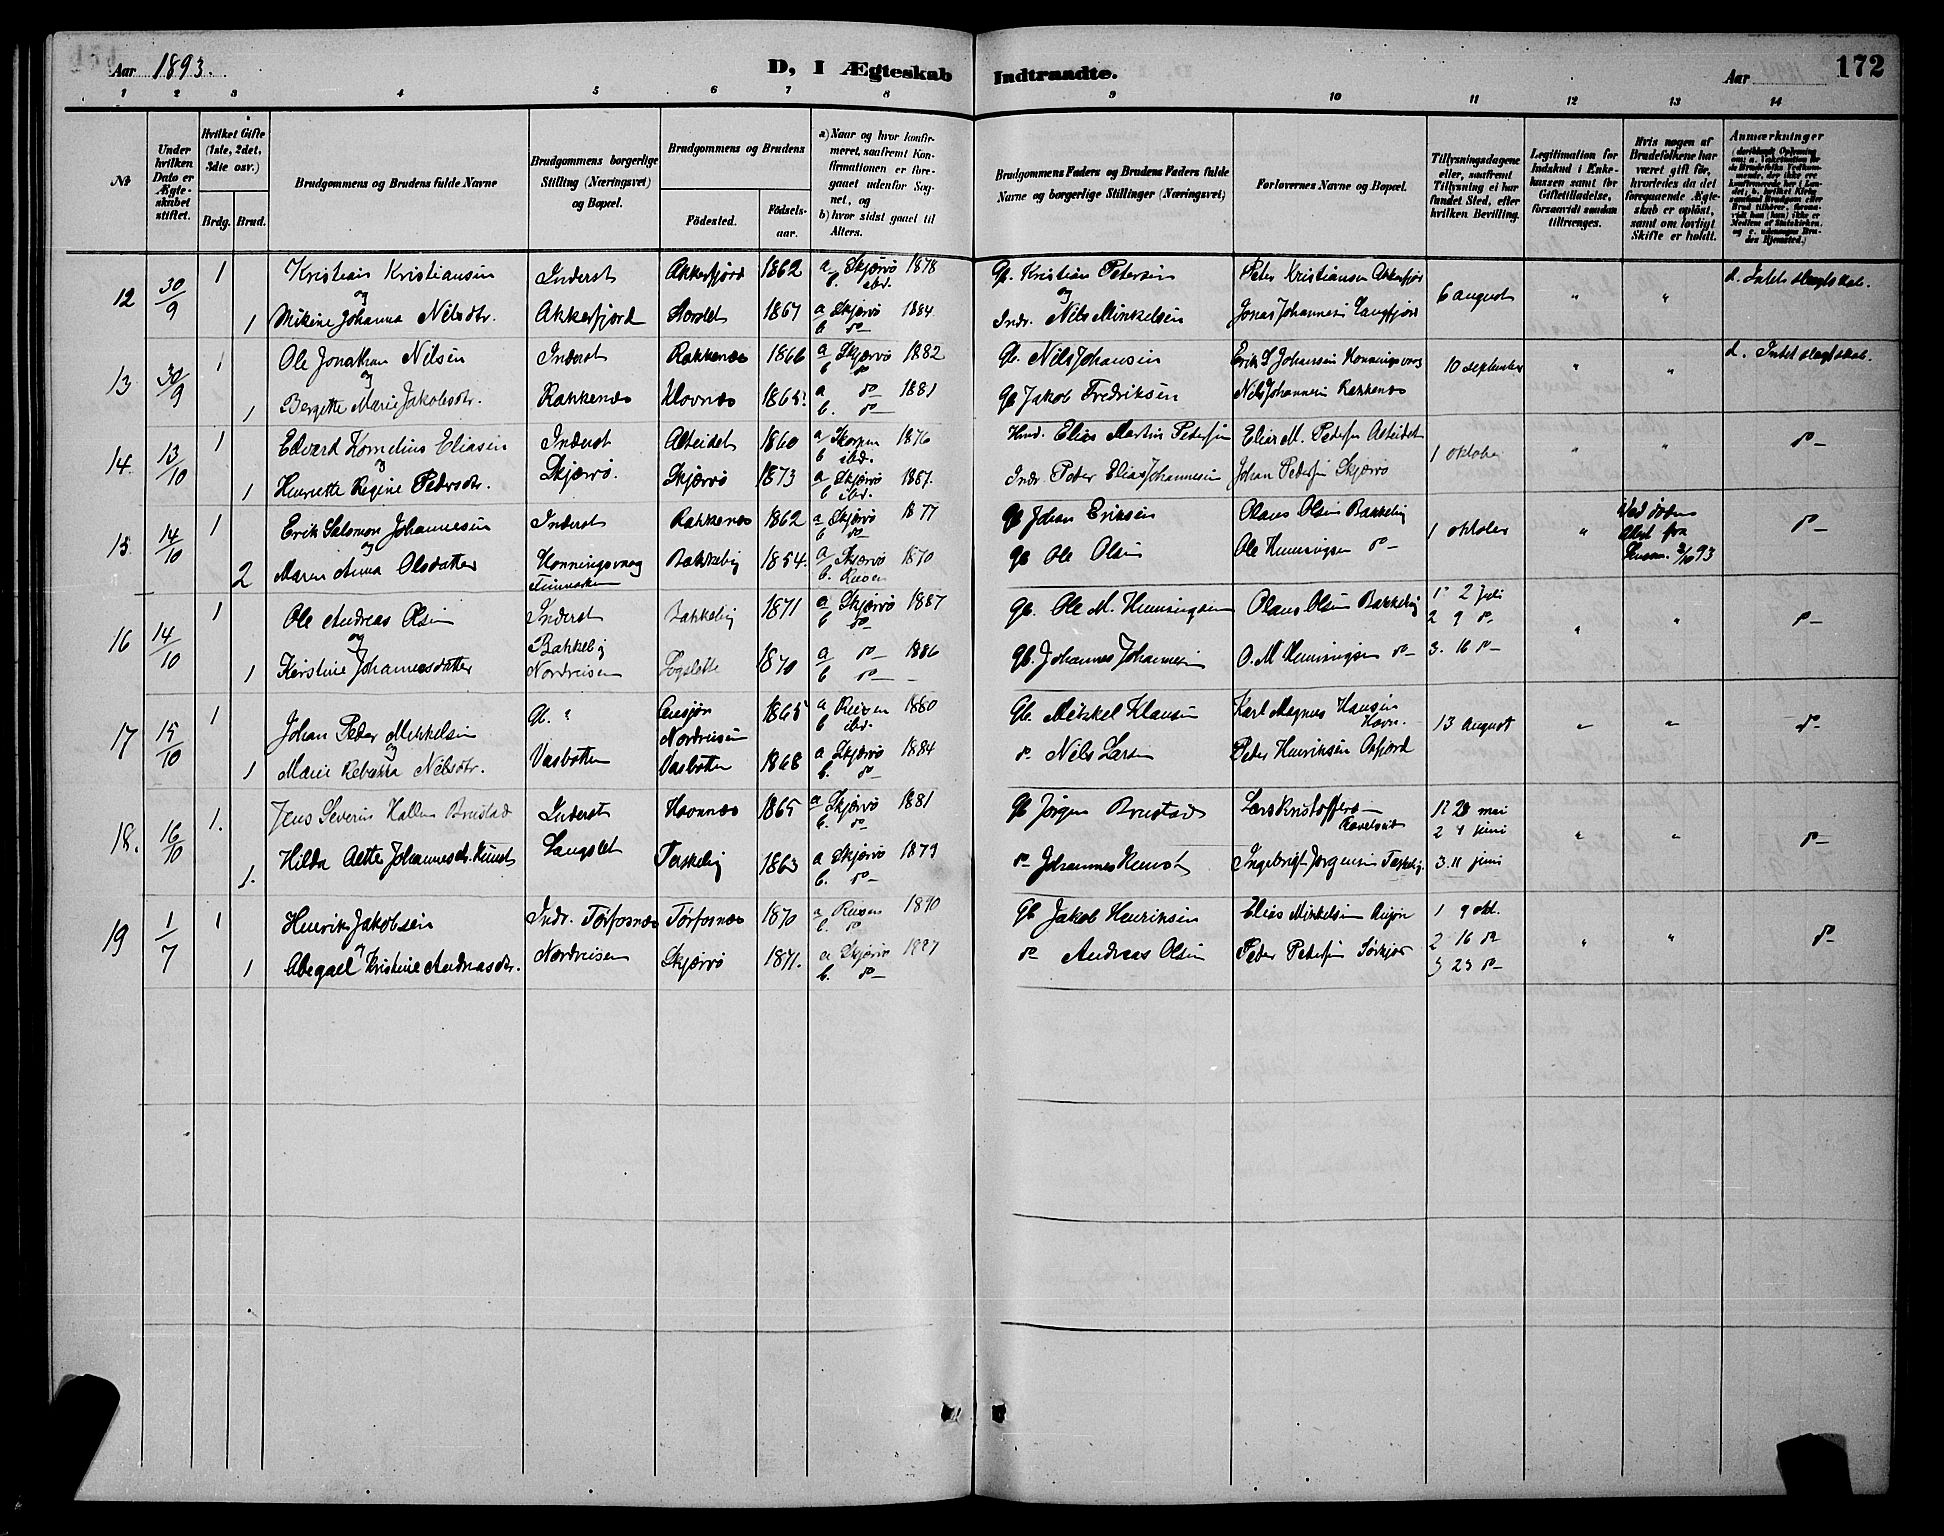 Aar 1893. D, I Ægteskab Indtraadte. Aar 172
1 2 3 4 5 6 7 8 9 10 11 12 13 14
№
Under hvilken Dato er Ægteskabet stiftet.
Hvilket Gifte (1ste, 2det, 3die osv.)
Brdg. Brud.
Brudgommens og Brudens fulde Navne
Brudgommens borgerlige Stilling (Næringsvei) og Bopæl.
Brudgommens og Brudens
Födested. Födselsaar.
a) Naar og hvor konfirmeret, saafremt Konfirmationen er foregaaet udenfor Sognet, og
b) hvor sidst gaaet til Alters.
Brudgommens Faders og Brudens Faders fulde Navne og borgerlige Stillinger (Næringsvei)
Forlovernes Navne og Bopæl.
Tillysningsdagene eller, saafremt Tillysning ei har fundet Sted, efter hvilken Bevilling.
Legitimation for Indskud i Enkekassen samt for Giftetilladelse, forsaavidt saadan tiltrænges.
Hvis nogen af Brudefolkene har været gift för, hvorledes da det foregaaende Ægteskab er oplöst, samt om lovligt Skifte er holdt.
Anmærkninger
12 30/9 1 Kristian Kristiansen Inderst Akkerfjord 1862 a Skjærvö 1878 Gb. Kristian Petersen Peter Kristiansen Akkerfjor 6 august " " d. Intet slægtskab.
og b. ibd.
1 Mikine Johanna Nilsdtr. Akkerfjord Storslet 1867 a Skjærvö 1884 Indr. Nils Minkelsen Jonas Johannesen Langfjord
b do
13 30/9 1 Ole Jonathan Nilsen Inderst Rakkenæs 1866 a Skjærvö 1882 Gb. Nils Johansen Erik S Johansen Honningsvaag 10 september " " d. Intet slægtskab.
og b do
1 Bergitte Marie Jakobsdtr. Rakkenæs Havnnæs 1865. a do 1881 Gb Jakob Fredriksen Nils Johannesen Rakkenæs
b. do
14. 13/10 1 Edvard Kornelius Eliasen Inderst Alteidet 1860 a Skorpen 1876 Hmd. Elias Martin Petersen Elias M. Petersen Alteidet 1 oktober " " do
og b ibd.
1 Henriette Regine Pedersdtr. Skjærvö. Skjærvö 1873 a Skjærvö 1887. Indr. Peder Elias Johannesen Johan Petersen Skjærvö
b ibd.
15 14/10 1 Erik Salomon Johannesen Inderst Rakkenæs 1862 a Skjærvö 1877 Gb Johan Eriksen Olaus Olsen Bakkeby 1 oktober " Ved döden do
og b do
2 Maren Anna Olsdatter Honningsvaag Finmarken Bakkeby 1854. a Skjærvö 1870 Gb Ole Olsen Ole Henningsen do
b. Reisen
16 14/10 1 Ole Andreas Olsen Inderst Bakkeby 1871 a Skjærvö 1887 Gb. Ole M. Henningsen Olaus Olsen Bakkeby 1 2 juli " " do
og b do 2 9 do
1 Kerstine Johannesdatter Bakkeby Nordreisen 1870 a do 1886 Gb. Johannes Johannesen O. M Henningsen do 3. 16 do
b do
17 15/10 1 Johan Peder Mikkelsen Gb. " Nordreisen 1865 a Reisen 1880 Gb. Mikkel Klausen Karl Magnus Hansen Havn. 13 august " " do
og b ibd.
1 Marie Rebekka Nilsdtr. Vasbotten Vasbotten 1868 a Skjærvö 1884 do Nils Larsen Peder Henriksen Oxfjord
b. do
18. 16/10 1. Jens Severin Hallen Brustad Inderst Havnnæs 1865 a Skjærvö 1881 Gb Jörgen Brustad Lars Kristoffers. 1. 28 mai " " do
b. do 2 4 juni
1. Hilda Aletta Johannesdtr. Kunst Langslet Taskeby 1863 a Skjærvö 1879 do Johannes Kunst Ingebrigt Jörgensen Taskeby. 3. 11 juni
b. do
19 1/7 1 Henrik Jakobsen Indr. Torfosnæs Torfosnæs 1870 a Reisen 1890 Gb Jakob Henriksen Elias Mikkelsen 1 9 okt. " " do
og b. do 2 16 do
1 Abegael Kristine Andreasdtr. Nordreisen Skjærvö 1871. a Skjærvö 1887 do Andreas Olsen Peder Petersen Sörkjos 3 23 do
b. do